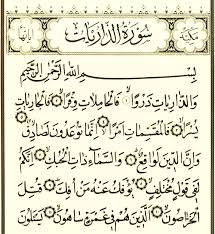 مكية سُورَةُ الذَّارِيَاتِ
بِسْمِ اللهِ الرَّحْمٰنِ الرَّحِيمِ
وَالذَّارِيَاتِ ذَرْوًا ۝ فَالْحَامِلَاتِ وِقْرًا ۝ فَالْجَارِيَاتِ
يُسْرًا ۝ فَالْمُقَسِّمَاتِ اَمْرًا ۝ اِنَّمَا تُوعَدُونَ لَصَادِقٌ ۝
وَاِنَّ الدِّينَ لَوَاقِعٌ ۝ وَالسَّمَاءِ ذَاتِ الْحُبُكِ ۝ اِنَّكُمْ
لَفِي قَوْلٍ مُخْتَلِفٍ ۝ يُؤْفَكُ عَنْهُ مَنْ اُفِكَ ۝ قُتِلَ
الْخَرَّاصُونَ ۝ الَّذِينَ هُمْ فِي غَمْرَةٍ سَاهُونَ ۝ يَسْـَٔلُونَ